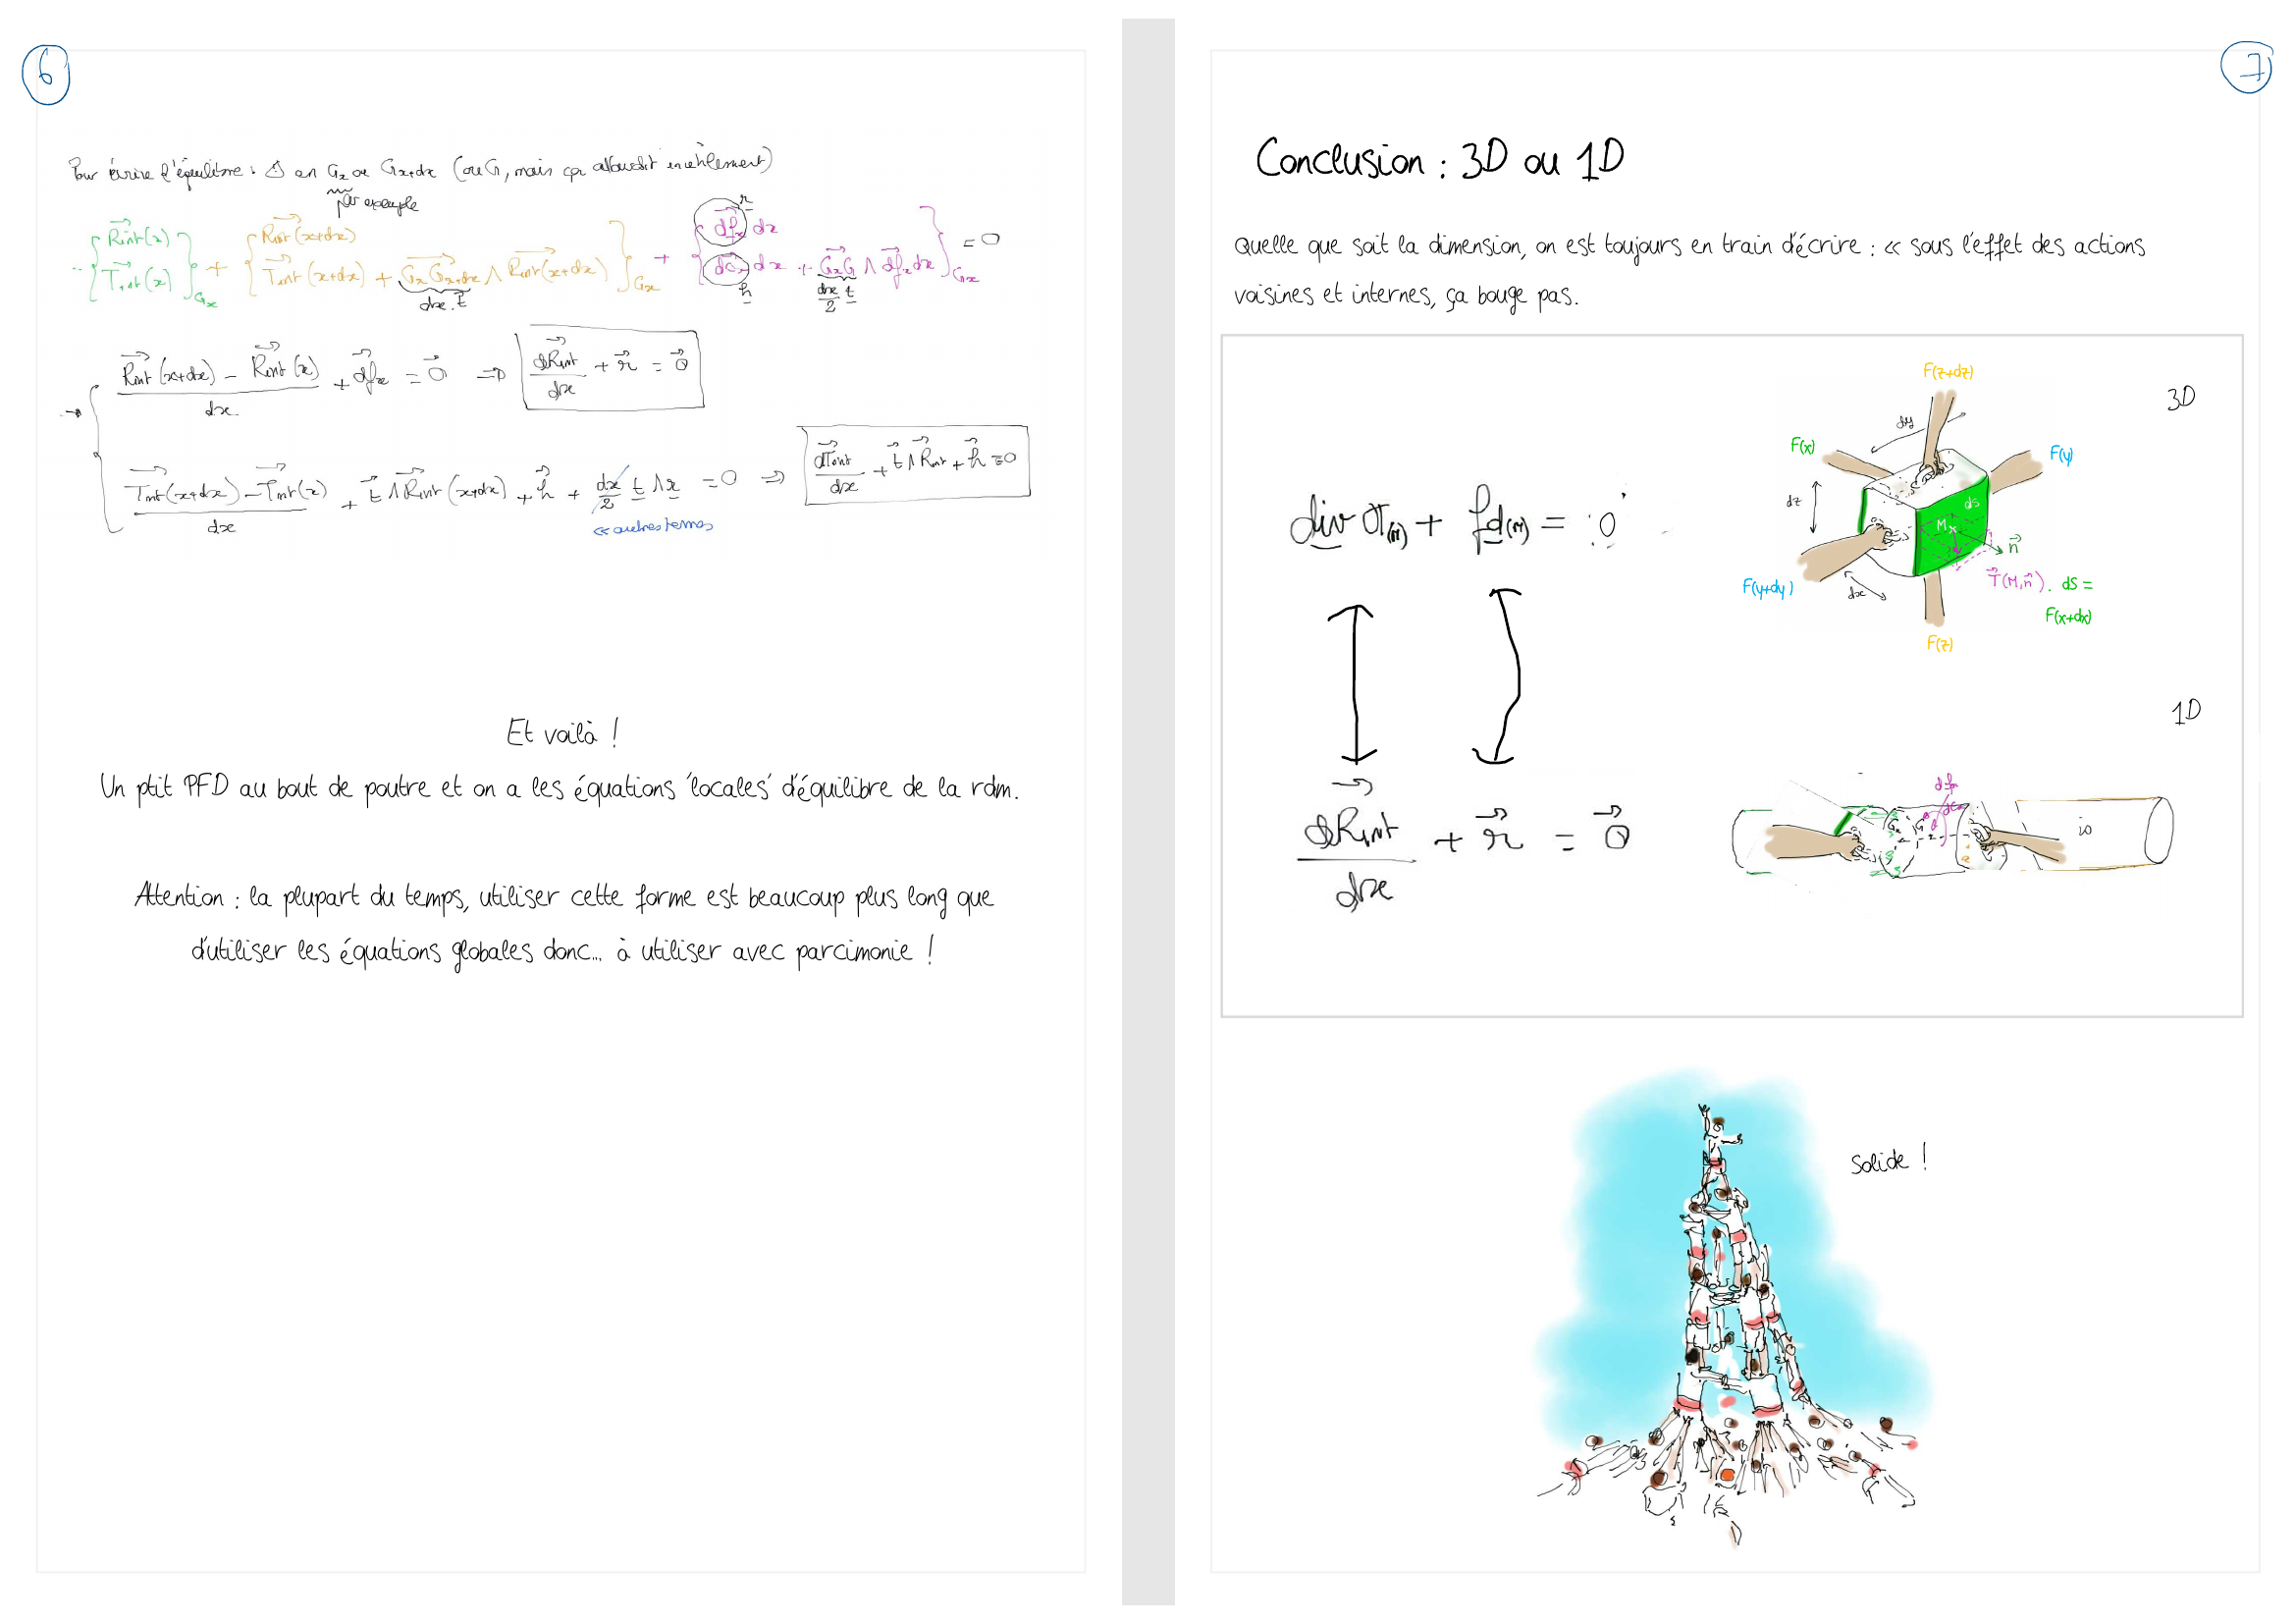 6
Pour écrire l'équilibre : ⚠ en Gx ou Gx+dx (ou G, mais ça alourdit inutilement)
par exemple
- { Rint(x) Tint(x) }Gx + { Rint(x+dx) Tint(x+dx) + GxGx+dx ∧ Rint(x+dx) }Gx + { dfx dx dCx dx + GxG ∧ dfx dx }Gx = 0
r
h
dx.t
dx/2 t
(Rint(x+dx) - Rint(x))/dx + dfx = 0 ⇒ dRint/dx + r = 0
(Tint(x+dx) - Tint(x))/dx + t ∧ Rint(x+dx) + h + dx/2 t ∧ r = 0 ⇒ dTint/dx + t ∧ Rint + h = 0
<< autres termes
Et voilà !
Un ptit PFD au bout de poutre et on a les équations 'locales' d'équilibre de la rdm.
Attention : la plupart du temps, utiliser cette forme est beaucoup plus long que
d'utiliser les équations globales donc... à utiliser avec parcimonie !
7
Conclusion : 3D ou 1D
Quelle que soit la dimension, on est toujours en train d'écrire : « sous l'effet des actions
voisines et internes, ça bouge pas.
3D
F(z+dz)
dy
F(x)
F(y)
dz
dS
M
n
F(y+dy)
dx
T(M,n). dS =
F(x+dx)
F(z)
div σ(M) + fd(M) = 0
1D
dRint/dx + r = 0
Solide !